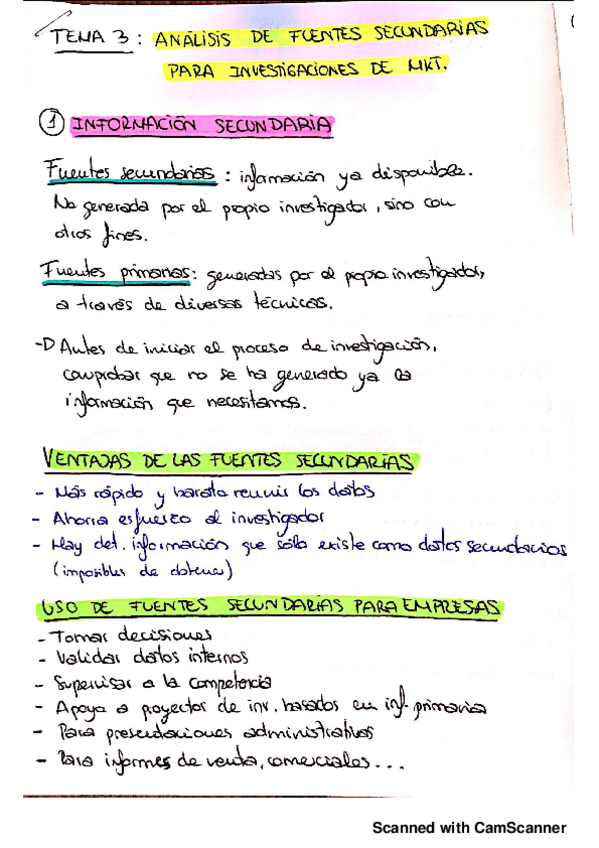 TEMA 3: ANÁLISIS DE FUENTES SECUNDARIAS
PARA INVESTIGACIONES DE MKT.
1 INFORMACIÓN SECUNDARIA
Fuentes secundarias: información ya disponible.
No generada por el propio investigador, sino con
otros fines.
Fuentes primarias: generadas por el propio investigador,
a través de diversas técnicas.
-D Antes de iniciar el proceso de investigación,
comprobar que no se ha generado ya la
información que necesitamos.
VENTAJAS DE LAS FUENTES SECUNDARIAS
- Más rápido y barato reunir los datos
- Ahorra esfuerzo al investigador
- Hay det. información que sólo existe como datos secundarios
(imposibles de obtener)
USO DE FUENTES SECUNDARIAS PARA EMPRESAS
- Tomar decisiones
- Validar datos internos
- Supervisar a la competencia
- Apoyo a proyectos de inv. basados en inf. primaria
- Para presentaciones administrativas
- Para informes de venta, comerciales...
Scanned with CamScanner